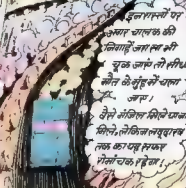 इन रास्तों पर
अगर चालक की
निगाहें जरा भी
चूक जाएं तो सीधे
मौत के मुंह में चला
जाए।
वैसे मंजिल मिले या ना
मिले, लेकिन लद्दाख
तक का यह सफर
रोमांचक रहेगा।